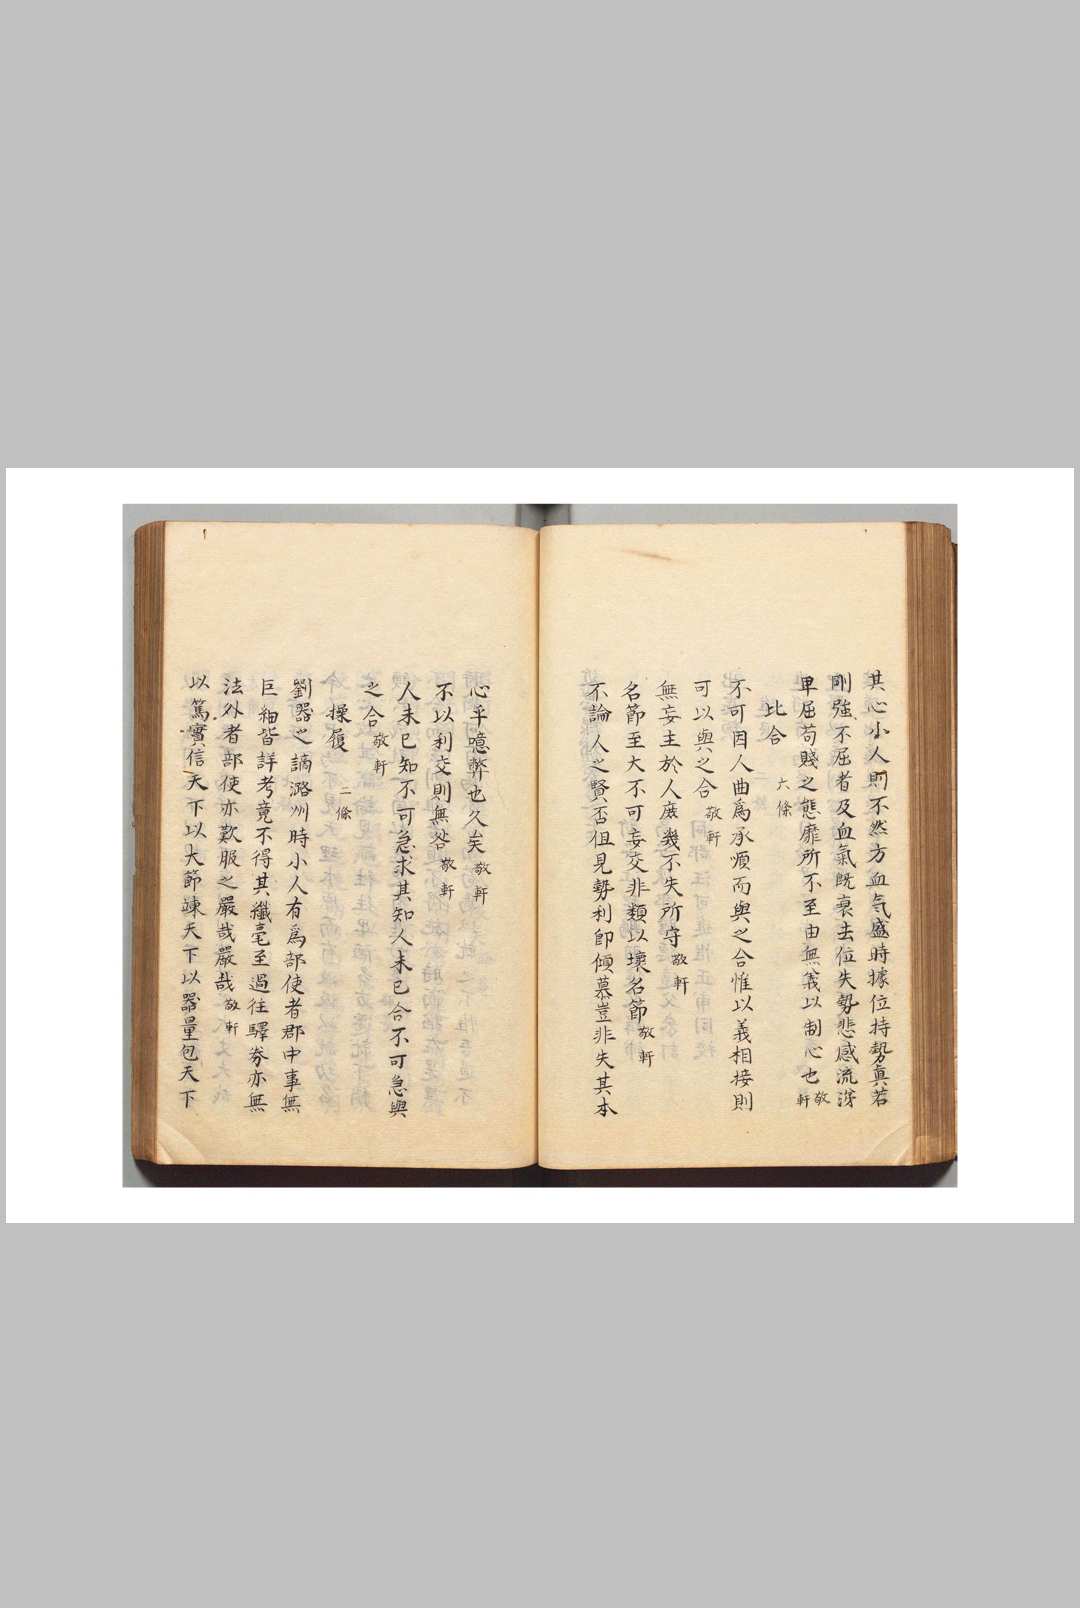 其心小人則不然方血氣盛時據位持勢真若
剛強不屈者及血氣既衰去位失勢悲感流涕
卑屈苟賤之態靡所不至由無義以制心也敬軒
比合 六條
不可因人曲為承順而與之合惟以義相接則
可以與之合敬軒
無妄主於人庶幾不失所守敬軒
名節至大不可妄交非類以壞名節敬軒
不論人之賢否徂見勢利即傾慕豈非失其本
心乎噫弊也久矣敬軒
不以利交則無咎敬軒
人未已知不可急求其知人未已合不可急與
之合敬軒
操履 二條
劉器之謫潞州時小人有為部使者郡中事無
巨細皆詳考竟不得其纖毫至過往驛券亦無
法外者部使亦歎服之嚴哉嚴哉敬軒
以篤實信天下以大節竦天下以器量包天下